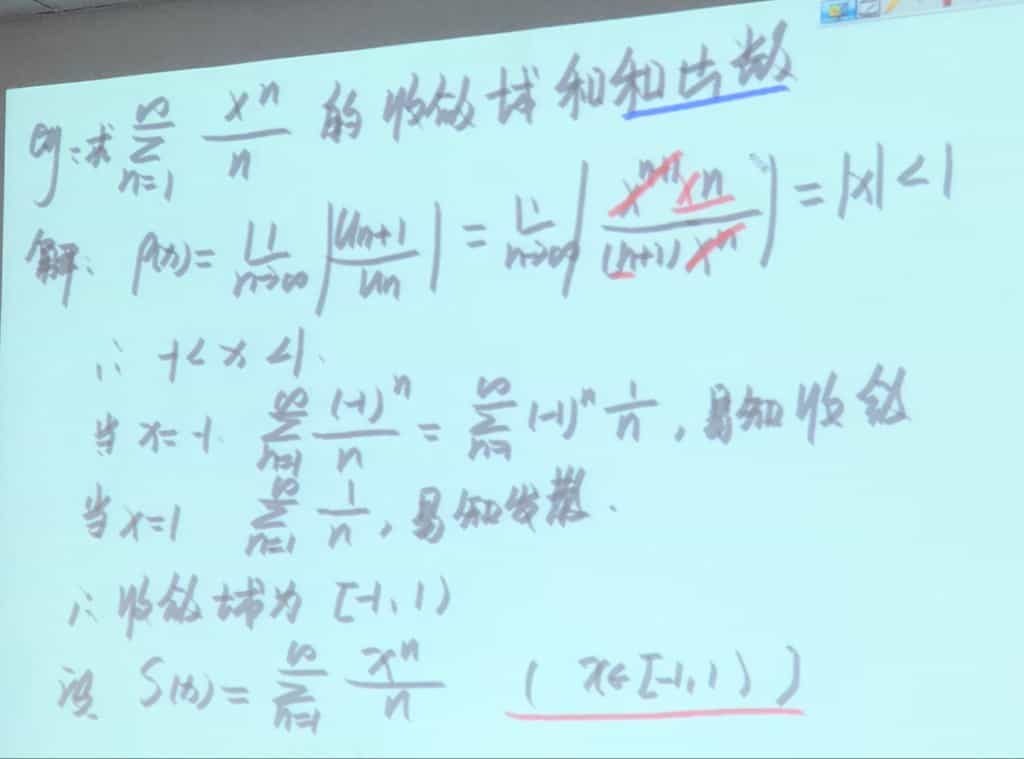 eg:求 ∑_{n=1}^{∞} x^n/n 的收敛域和和函数
解: ρ(x)= lim_{n→∞} |U_{n+1}/U_n| = lim_{n→∞} |x^{n+1} × n/((n+1) x^n)| = |x| < 1
∴ -1<x<1.
当 x=-1 ∑_{n=1}^{∞} (-1)^n/n = ∑_{n=1}^{∞} (-1)^n 1/n , 易知收敛
当 x=1 ∑_{n=1}^{∞} 1/n , 易知发散.
∴收敛域为 [-1,1)
设 S(x)= ∑_{n=1}^{∞} x^n/n ( x∈[-1,1) )